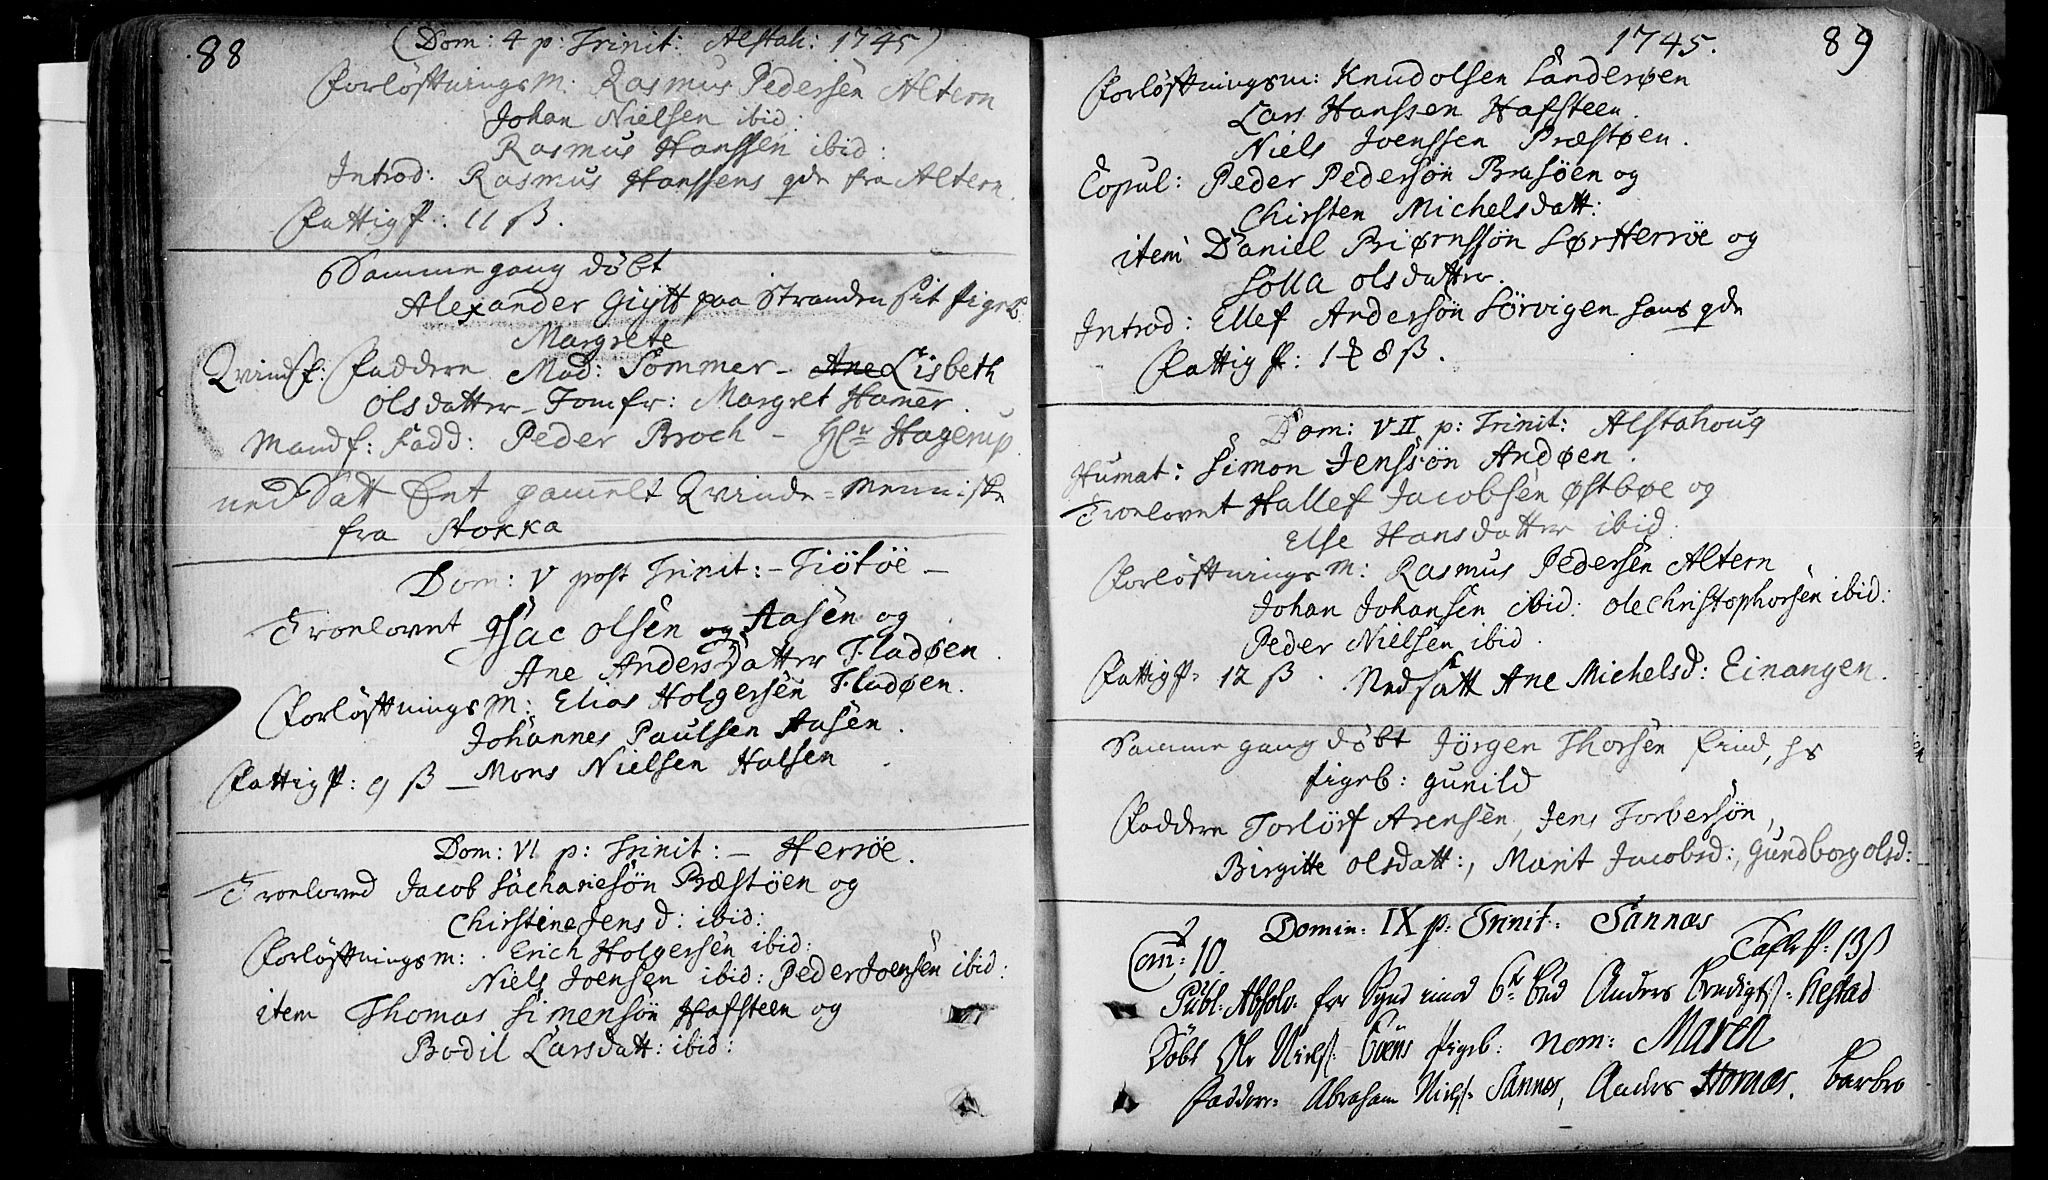 88
(Dom: 4 p: Trinit: Alstah: 1745)
Forløftningsm: Rasmus Pedersen Altern
Johan Nielsen ibid:
Rasmus Hanssen ibid:
Introd: Rasmus Hanssens qde fra Altern.
Fattig p: 11 ß.
Samme gang døbt
Alexander Giytt paa Stranden sit pigeb.
Margrete
Qvindf: Faddere Mad: Sommer - Ane Lisbeth
Olsdatter - Jomfr: Margret Hamer.
Mandf: Fadd: Peder Broch - Hr Hagerup.
nedsatt Et gamelt Qvinde-Menniske
fra Stokka
Dom: V post Trinit: - Tiøtøe -
Troelovet Isac Olsen og Aasen og
Ane Andersdatter Fladøen.
Forløftnings M: Elias Holgersen Fladøen.
Johannes Paulsen Aasen.
Fattig p: 9 ß — Mons Nielsen Halsen
Dom: VI p: Trinit: - Herrøe.
Troeloved Jacob Sachariesøn Præstøen og
Chirstine Jens d: ibid:
Forløftningsm: Erich Holgersen ibid:
Niels Joensen ibid: Peder Joensen ibid:
item Thomas Simensøn Hafsteen og
Bodil Larsdatt: ibid:
1745. 89
Forløftningsm: Knud Olsen Sanderøen
Lars Hanssen Hafsteen.
Niels Joenssen Præstøen.
Copul: Peder Pedersøn Brasøen og
Chirsten Michelsdatt:
item Daniel Biørnssøn Sør Herrøe og
Solla Olsdatter.
Introd: Ellef Andersøn Sörvigen hans qde
Fattig p: 1 ℔ 8 ß.
Dom: VII p: Trinit: Alstahoug
Humat: Simon Jenssøn Andøen.
Troelovet Hallef Jacobsen Østbøe og
Else Hansdatter ibid:
Forløftnings m: Rasmus Pedersen Altern
Johan Johansen ibid: Ole Christophersen ibid:
Peder Nielsen ibid.
Fattig p: 12 ß. Nedsatt Ane Michelsd: Einangen.
Samme gang døbt Jörgen Thorsen find, hs
pigeb: Gunild
Faddere Torlöf Arensen, Jens Torbersøn,
Birgitte Olsdatt:, Marit Jacobsd:, Gundborg Olsd:
Domin: IX p: Trinit: Sannæs
Com: 10. Tafle p: 13 ß
Publ: Absolv: for Synd imod 6te Bud Anders Bendigts: Nestad
Døbt Ole Niels: pigeb: nom: Maren
Faddere: Abraham Niels: Sannæs, Anders Homæs. Barbro